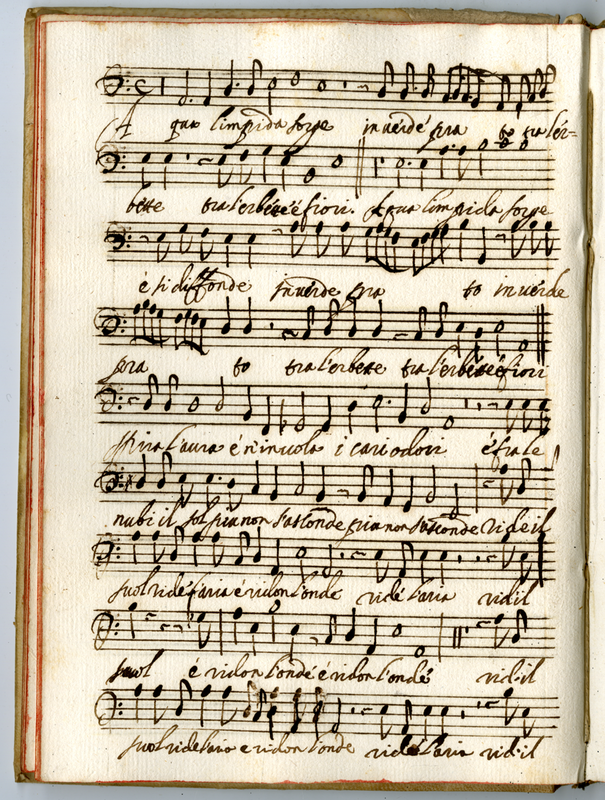 Aqua limpida sorge in verde pra to tra l'er=
bette tra l'erbette é fiori. Aqua limpida sorge
é si diffonde in verde pra to in verde
pra to tra l'erbette tra l'erbette é fiori
Spira l'aura é n'invola i cari odori é fra le
nubi il sol piu non s'asconde piu non s'asconde vid'il
suol vide l'aria é vidon l'onde vidé l'aria vid'il
suol é vidon l'onde é vidon l'onde vid'il
suol vide l'aria e vidon l'onde vide l'aria vid'il